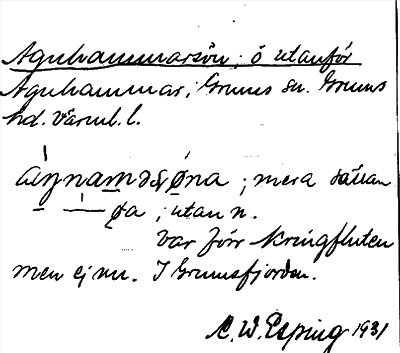 Agnhammarsön; ö utanför
Agnhammar i Grums sn. Grums
hd. Värml. l.
; mera sällan
; utan n.
Var förr kringfluten
men ej nu. I Grumsfjorden.
C. W. Esping 1931